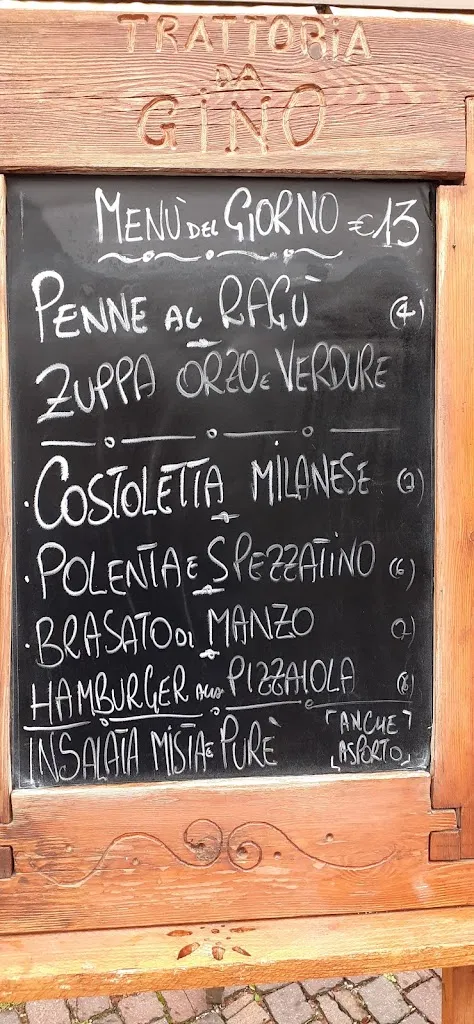 TRATTORIA
DA
GINO
MENÙ DEL GIORNO €13
PENNE AL RAGÙ (4)
ZUPPA ORZO E VERDURE
· COSTOLETTA MILANESE
· POLENTA E SPEZZATINO (6)
· BRASATO DI MANZO
HAMBURGER ALLA PIZZAIOLA
INSALATA MISTA E PURÈ
ANCHE
ASPORTO